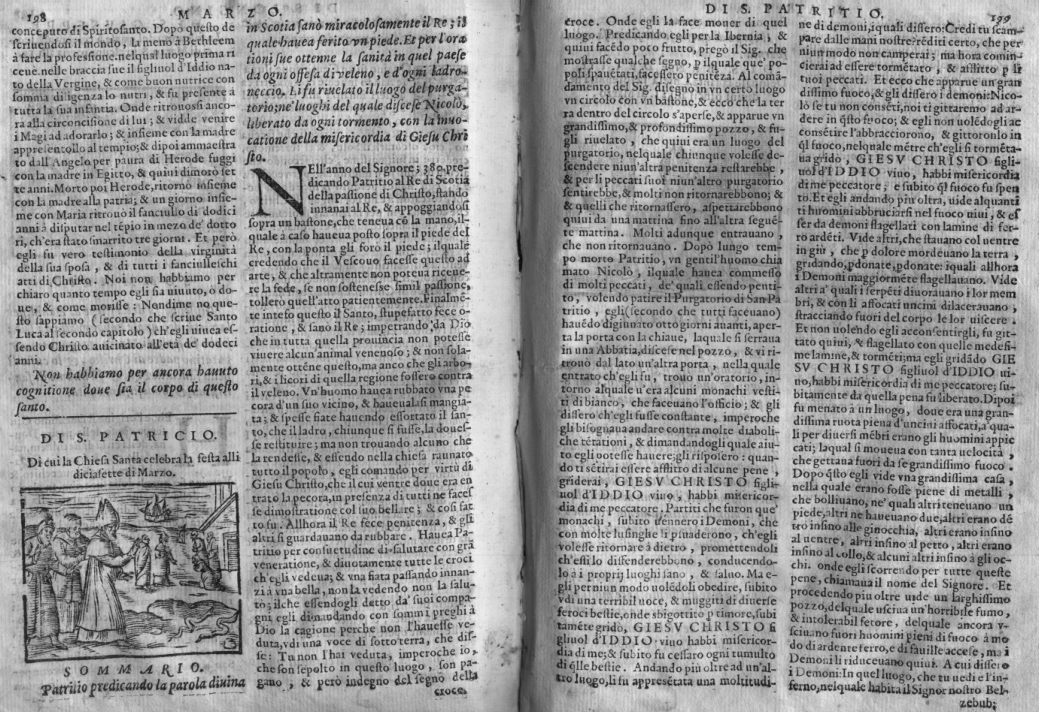 198
MARZO.
conceputo di Spiritosanto. Dopò questo de
scriuendosi il mondo, la menò à Bethleem
à fare la professione. nelqual luogo prima ri
ceuè. nelle braccia sue il figliuol d'Iddio na
to della Vergine, & come buon nutrice con
somma diligenza lo nutrì, & fu presente à
tutta la sua infantia. Onde ritrouossi anco-
ra alla circoncisione di lui; & vidde venire
i Magi ad adorarlo; & insieme con la madre
appresentollo al tempio; & dipoi ammaestra
to dall'Angelo, per paura di Herode fuggì
con la madre in Egitto, & quiui dimorò set
te anni. Morto poi Herode, ritornò insieme
con la madre alla patria; & un giorno insie-
me con Maria ritrouò il fanciullo di dodici
anni à disputar nel tẽpio in mezo de' dotto
ri, ch'era stato smarrito tre giorni. Et però
egli fu vero testimonio della virginità
della sua sposa, & di tutti i fanciulleschi
atti di Christo. Noi non habbiamo per
chiaro quanto tempo egli sia uiuuto, ò do-
ue, & come morisse: Nondimeno que-
sto sappiamo (secondo che scriue Santo
Luca al secondo capitolo) ch'egli uiuea es-
sendo Christo auicinato all'età de' dodeci
anni.
Non habbiamo per ancora hauuto
cognitione doue sia il corpo di questo
santo.
DI S. PATRICIO.
Di cui la Chiesa Santa celebra la festa alli
diciasette di Marzo.
SOMMARIO.
Patritio predicando la parola diuina
in Scotia sanò miracolosamente il Re; il
quale hauea ferito vn piede. Et per l'ora
tioni sue ottenne la sanità in quel paese
da ogni offesa di veleno, e d'ogni ladro-
neccio. Li fu riuelato il luogo del purga-
torio; ne' luoghi del quale discese Nicolò,
liberato da ogni tormento, con la inuo-
catione della misericordia di Giesu Chri
sto.
NEll'anno del Signore; 380. pre-
dicando Patritio al Re di Scotia
della passione di Christo, stando
innanzi al Re, & appoggiandosi
sopra un bastone, che teneua cõ la mano, il-
quale à caso haueua posto sopra il piede del
Re, con la ponta gli forò il piede; ilquale
credendo che il Vescouo facesse questo ad
arte, & che altramente non poteua riceue-
re la fede, se non sostenesse simil passione,
tollerò quell'atto patientemente. Finalmẽ-
te inteso questo il Santo, stupefatto fece o-
ratione, & sanò il Re; impetrando da Dio
che in tutta quella prouincia non potesse
viuere alcun'animal venenoso; & non sola-
mente ottẽne questo, ma anco che gli arbo-
ri, & licori di quella regione fossero contra
il veleno. Vn'huomo hauea rubbato vna pe
cora d'un suo vicino, & haueualasi mangia-
ta; & spesse fiate hauendo essortato il san-
to, che il ladro, chiunque si fusse, la doues-
se restituire; ma non trouando alcuno che
la rendesse, & essendo nella chiesa raunato
tutto il popolo, egli comandò per virtù di
Giesu Christo, che il cui ventre doue era en
trato la pecora, in presenza di tutti ne faces
se dimostratione col suo bellare; & così fat
to fu. Allhora il Re fece penitenza, & gli
altri si guardauano da rubbare. Hauea Pa-
tritio per consuetudine di salutare con grã
veneratione, & diuotamente tutte le croci
ch'egli vedeua; & vna fiata passando innan-
zi à vna bella, non la vedendo non la salu-
tò; ilche essendogli detto da' suoi compa-
gni egli dimandando con sommi preghi à
Dio la cagione perche non l'hauesse ve-
duta, vdì una voce di sotto terra, che dis-
se: Tu non l'hai veduta, imperoche io,
che son sepolto in questo luogo, son pa-
gano, & però indegno del segno della
croce.
DI S. PATRITIO.
199
croce. Onde egli la face mouer di quel
luogo. Predicando egli per la Ibernia, &
quiui facẽdo poco frutto, pregò il Sig. che
mostrasse qualche segno, p̱ ilquale que' po-
poli spauẽtati, facessero penitẽza. Al comã-
damento del Sig. disegnò in vn certo luogo
vn circolo con vn bastone, & ecco che la ter
ra dentro del circolo s'aperse, & apparue vn
grandissimo, & profondissimo pozzo, & fu-
gli riuelato, che quiui era un luogo del
purgatorio, nelquale chiunque volesse de-
scendere niun'altra penitenza restarebbe,
& per li peccati suoi niun'altro purgatorio
sentirebbe, & molti non ritornarebbono; &
& quelli che ritornassero, aspettarebbono
quiui da una mattina fino all'altra seguẽ-
te mattina. Molti adunque entrauano,
che non ritornauano. Dopò lungo tem-
po morto Patritio, vn gentil'huomo chia
mato Nicolò, ilquale hauea commesso
di molti peccati, de' quali essendo penti-
to, volendo patire il Purgatorio di San Pa
tritio, egli (secondo che tutti faceuano)
hauẽdo digiunato otto giorni auanti, aper-
ta la porta con la chiaue, laquale si serraua
in una Abbatia, discese nel pozzo, & vi ri-
trouò dal lato un'altra porta, nella quale
entrato ch'egli fu, trouò un'oratorio, in-
torno alquale u'era alcuni monachi vesti-
ti di bianco, che faceuano l'officio; & gli
dissero ch'egli fusse constante, imperoche
gli bisognaua andare contra molte diaboli-
che tẽtationi, & dimandandogli quale aiu-
to egli potesse hauere; gli risposero: quan-
do ti sẽtirai essere afflitto di alcune pene,
griderai, GIESV CHRISTO figli-
uol d'IDDIO viuo, habbi misericor-
dia di me peccatore. Partiti che furon que'
monachi, subito v̀ẽnero i Demoni, che
con molte lusinghe li psuaderono, ch'egli
volesse ritornare à dietro, promettendoli
ch'essi lo difenderebbono, conducendo-
lo à i proprij luoghi sano, & saluo. Ma e-
gli per niun modo uolẽdoli obedire, subito
vdì una terribil uoce, & muggiti di diuerse
feroci bestie, onde sbigottito p̱ timore, subi
tamẽte gridò, GIESV CHRISTO fi
gliuol d'IDDIO viuo habbi misericor-
dia di me; & subito fu cessato ogni tumulto
di q̃lle bestie. Andando più oltre ad un'al-
tro luogo, li fu appresẽtata una moltitudi-
ne di demoni, i quali dissero: Credi tu scam-
pare dalle mani nostre? rẽditi certo, che per
niun modo non camperai; ma hora comin-
cierai ad essere tormẽtato, & afflitto p̱ li
tuoi peccati. Et ecco che apparue un gran
dissimo fuoco, & gli dissero i demoni: Nico
lò se tu non consẽti, noi ti gittaremo ad ar-
dere in q̃sto fuoco; & egli non uolẽdogli ac
consẽtire l'abbracciorono, & gittoronlo in
q̃l fuoco, nelquale mẽtre ch'egli si tormẽta-
ua gridò, GIESV CHRISTO figli-
uol d'IDDIO viuo, habbi misericordia
di me peccatore; e subito q̃l fuoco fu spen
to. Et egli andando piu oltra, uide alquanti
ti huomini abbruciarsi nel fuoco uiui, & es
ser da demoni flagellati con lamine di fer-
ro ardẽti. Vide altri, che stauano col uentre
in giu, che p̱ dolore mordeuano la terra,
gridando, p̱donate, p̱donate: iquali allhora
i Demoni maggiormẽte flagellauano. Vide
altri a' quali i serpẽti diuorauano i lor mem
bri, & con li affocati uncini dilacerauano,
stracciando fuori del corpo le lor uiscere.
Et non uolendo egli acconsentirgli, fu git-
tato quiui, & flagellato con quelle medesi-
me lamine, & tormẽti; ma egli gridãdo GIE
SV CHRISTO figliuol d'IDDIO ui-
uo, habbi misericordia di me peccatore; su-
bitamente da quella pena fu liberato. Dipoi
fu menato à un luogo, doue era una gran-
dissima ruota piena d'uncini affocati, a' qua-
li per diuersi mẽbri erano gli huomini appic
cati; laqual si moueua con tanta uelocità,
che gettaua fuori da se grandissimo fuoco.
Dopò q̃sto egli vide vna grandissima casa,
nella quale erano fosse piene di metalli,
che bolliuano, ne' quali altri teneuano un
piede, altri ne haueuano due, altri erano dẽ
tro insino alle ginocchia, altri erano insino
al uentre, altri insino al petto, altri erano
insino al collo, & alcuni altri insino à gli oc-
chi. onde egli scorrendo per tutte queste
pene, chiamaua il nome del Signore. Et
procedendo piu oltre uide un larghissimo
pozzo, delquale usciua un'horribile fumo,
& intolerabil fetore, delquale ancora v-
sciuano fuori huomini pieni di fuoco à mo
do di ardente ferro, e di fauille accese, ma i
Demoni li riduceuano quiui. A cui dissero
i Demoni: In quel luogo, che tu uedi e l'in-
ferno, nelquale habita il Signor nostro Bel-
zebub;